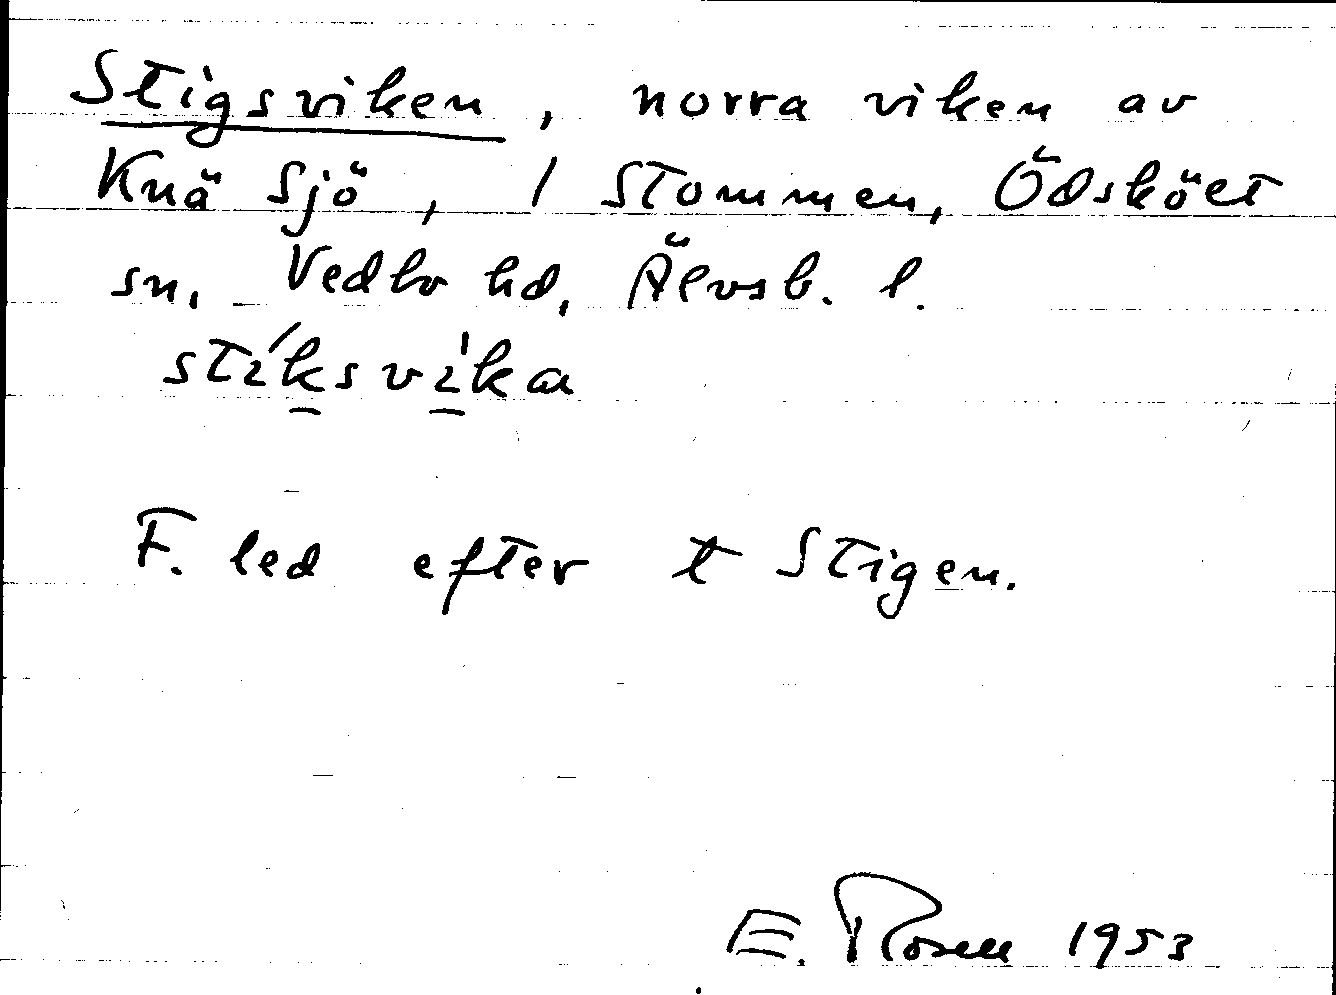 Stigsviken, norra viken av
Knä sjö, 1 Stommen, Ödsköet
sn, Vedbo hd, Älvsb. l.
stíksvìka
F. led efter t Stigen.
E. Rosell 1953